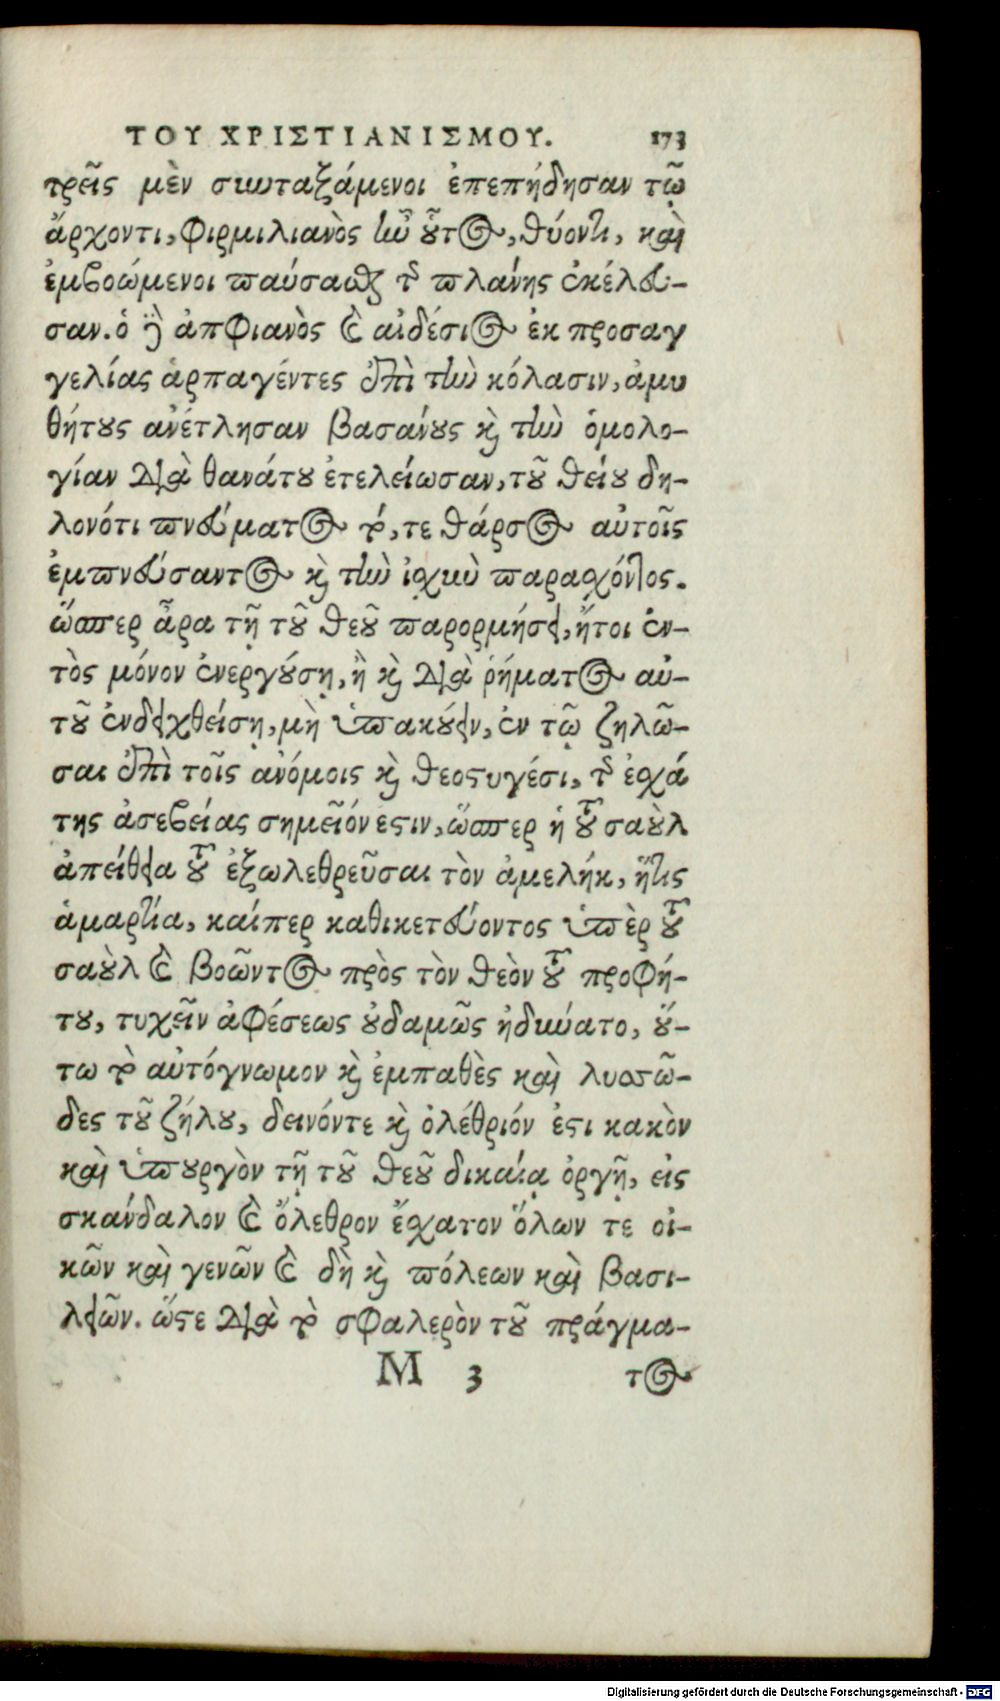 ΤΟΥ ΧΡΙΣΤΙΑΝΙΣΜΟΥ. 173
τρεῖς μὲν συνταξάμενοι ἐπεπήδησαν τῷ
ἄρχοντι, φιρμιλιανὸς ἦν οὗτος, θύοντι, καὶ
ἐμβοώμενοι παύσασθαι τῆς πλάνης ἐκέλευ-
σαν. ὁ δὲ ἀπφιανὸς καὶ αἰδέσιος ἐκ προσαγ
γελίας ἁρπαγέντες ἐπὶ τὴν κόλασιν, ἀμυ
θήτους ἀνέτλησαν βασάνους καὶ τὴν ὁμολο-
γίαν διὰ θανάτου ἐτελείωσαν, τοῦ θείου δη-
λονότι πνεύματος τό, τε θάρσος αὐτοῖς
ἐμπνεύσαντος καὶ τὴν ἰσχὺν παρασχόντος.
ὥσπερ ἆρα τῇ τοῦ θεοῦ παρορμήσει, ἤτοι ἐν-
τὸς μόνον ἐνεργούσῃ, ἢ καὶ διὰ ῥήματος αὐ-
τοῦ ἐνδειχθείσῃ, μὴ ὑπακούειν, ἐν τῷ ζηλῶ-
σαι ἐπὶ τοῖς ἀνόμοις καὶ θεοστυγέσι, τῆς ἐσχά
της ἀσεβείας σημεῖόν ἐστιν, ὥσπερ ἡ τοῦ σαοὺλ
ἀπείθεια τοῦ ἐξωλεθρεῦσαι τὸν ἀμελήκ, ἥτις
ἁμαρτία, καίπερ καθικετεύοντος ὑπὲρ τοῦ
σαοὺλ καὶ βοῶντος πρὸς τὸν θεὸν τοῦ προφή-
του, τυχεῖν ἀφέσεως οὐδαμῶς ἠδύνατο, οὕ-
τω τὸ αὐτόγνωμον καὶ ἐμπαθὲς καὶ λυσσῶ-
δες τοῦ ζήλου, δεινόντε καὶ ὀλέθριόν ἐστι κακὸν
καὶ ὑπουργὸν τῇ τοῦ θεοῦ δικαίᾳ ὀργῇ, εἰς
σκάνδαλον καὶ ὄλεθρον ἔσχατον ὅλων τε οἰ-
κῶν καὶ γενῶν καὶ δὴ καὶ πόλεων καὶ βασι-
λειῶν. ὥστε διὰ τὸ σφαλερὸν τοῦ πράγμα-
M 3 τος
Digitalisierung gefördert durch die Deutsche Forschungsgemeinschaft - DFG